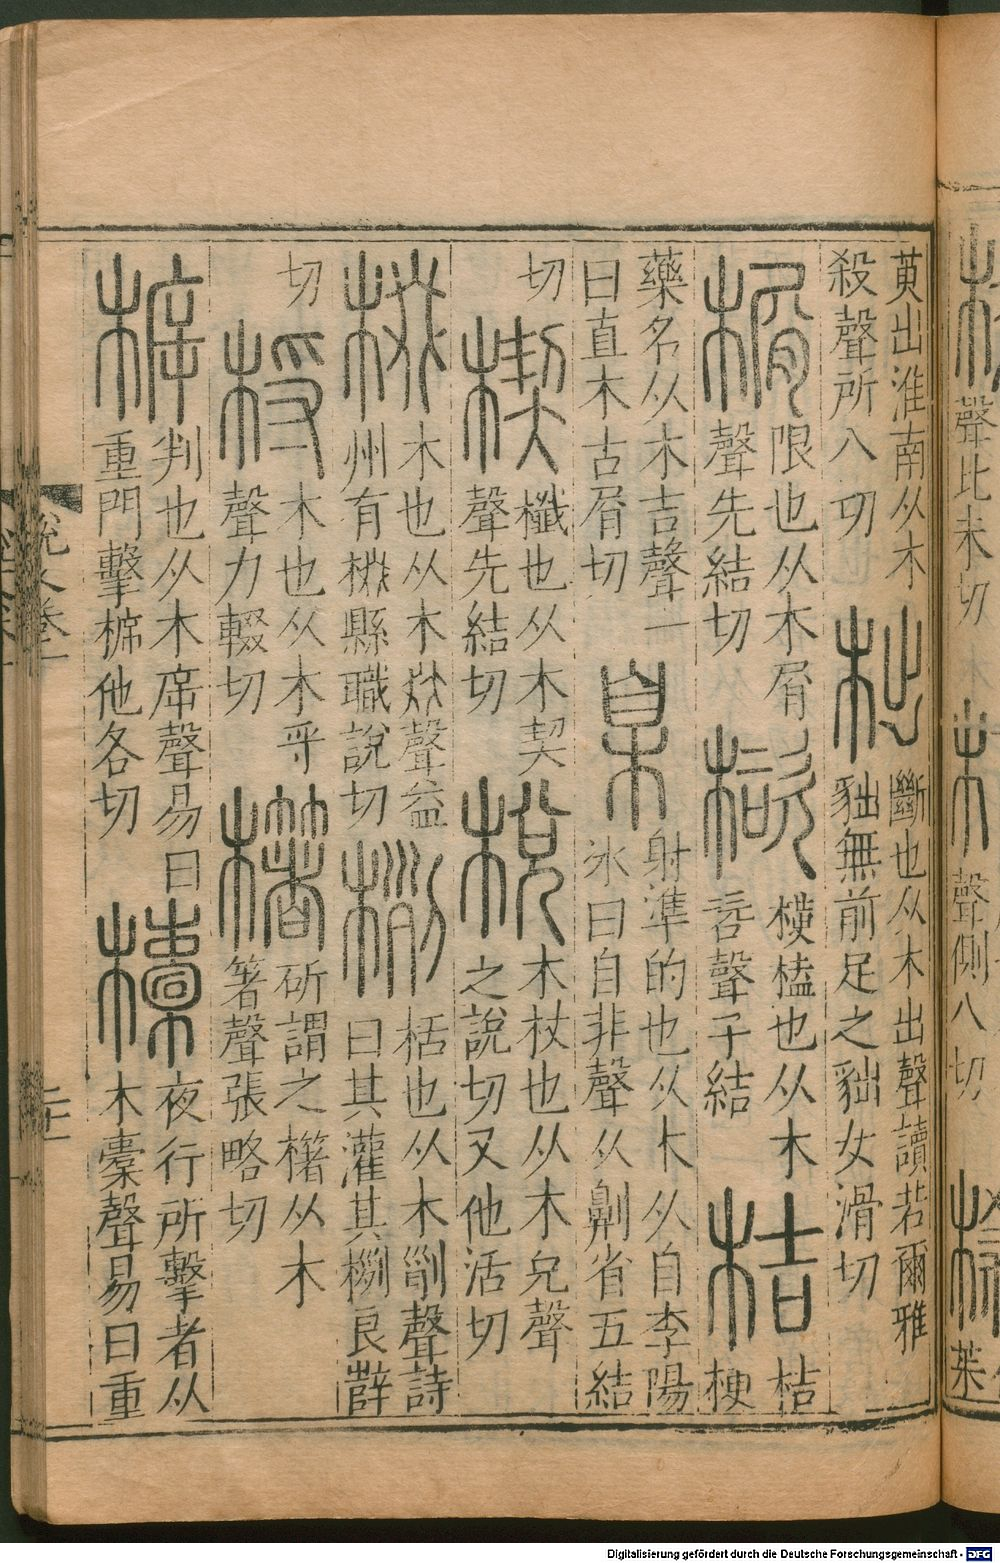 萸出淮南从木
殺聲所八切
柮
斷也从木出聲讀若爾雅
貀無前足之貀女滑切
榍
限也从木屑
聲先結切
榼也从木
咨聲子結
桔
桔
梗
藥名从木吉聲一
曰直木古屑切
臬
射準的也从木从自李陽
冰曰自非聲从劓省五結
切
楔
櫼也从木契
聲先結切
梲
木杖也从木兌聲
之說切又他活切
棳
木也从木叕聲益
州有棳縣職說切
栵
也从木𠛱聲詩
曰其灌其栵良薛
切
㭩
木也从木寽
聲力輟切
櫡
斫謂之櫡从木
箸聲張略切
𣔳
判也从木㡿聲易曰
重門擊𣔳他各切
欜
夜行所擊者从
木橐聲易曰重
聲比末切
聲側八切
茱
Digitalisierung gefördert durch die Deutsche Forschungsgemeinschaft - DFG